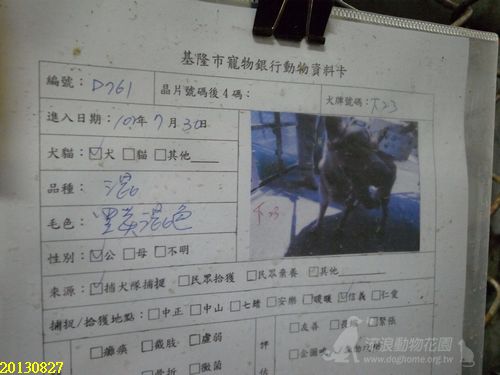 基隆市寵物銀行動物資料卡
編號：D761 晶片號碼後4碼： 犬牌號碼：下23
進入日期：102年7月30日
犬貓：☑犬 □貓 □其他
品種：混
毛色：黑黃混色
下23
性別：☑公 □母 □不明
來源：☑捕犬隊捕捉 □民眾拾獲 □民眾棄養 ☑其他
捕捉/拾獲地點：□中正 □中山 □七堵 □安樂 □暖暖 ☑信義 □仁愛
□癱瘓 □截肢 □虛弱 □友善 □長癬 □緊張
骨折 □黴菌 評估 □企圖咬
流浪動物花園
www.doghome.org.tw
20130827